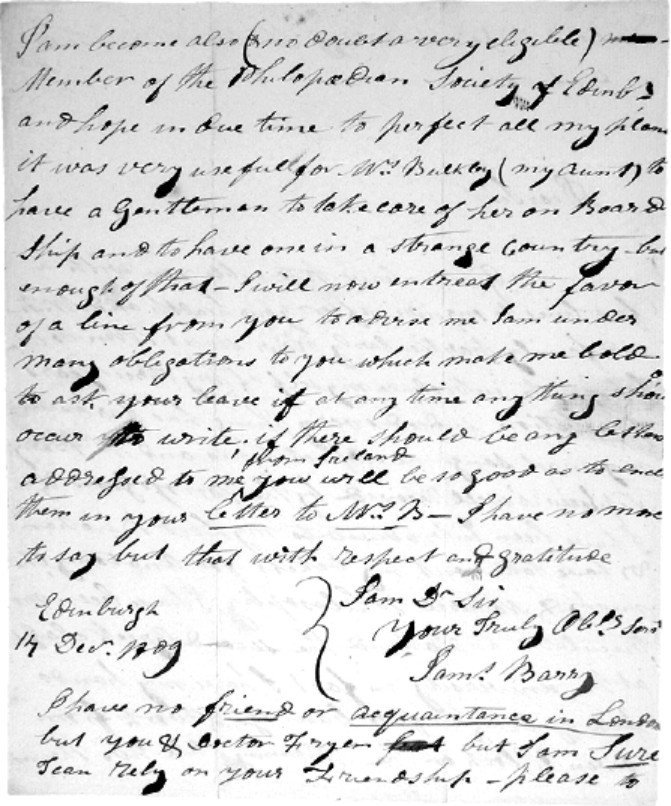 I am become also (& no doubt a very eligible)
Member of the Philopædian Society of Edinbʳ
and hope in due time to perfect all my plans
it was very usefull for Mʳˢ Bulkley (my aunt) to
have a Gentleman to take care of her on Board
Ship and to have one in a strange Country - but
enough of that - I will now entreat the favor
of a line from you to advise me I am under
many obligations to you which make me bold
to ask your leave if at any time any thing shou
occur to write. if there should be any letters
addressed to me from Ireland you will be so good as to encl
them in your letter to Mʳˢ B - I have no more
to say but that with respect and gratitude
I am Dʳ Sir
Edinburgh
Your Truly Obᵗ Serv
14 Decʳ 1809
Jamˢ Barry
I have no friend or acquaintance in London
but you & Doctor Fryer but I am Sure
I can rely on your Friendship - please to